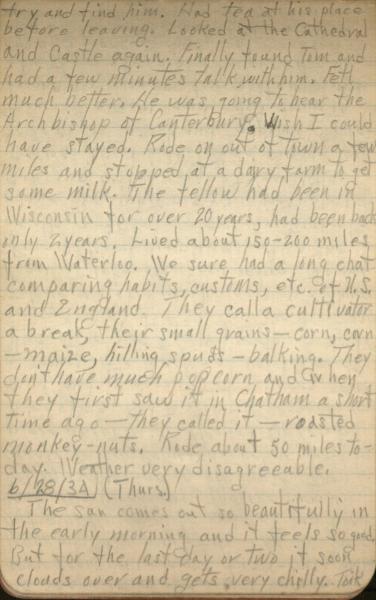 try and find him. Had tea at his place
before leaving. Looked at the Cathedral
and Castle again. Finally found Tom and
had a few minutes talk with him. Felt
much better. He was going to hear the
Archbishop of Canterbury. Wish I could
have stayed. Rode on out of town a few
miles and stopped at a dairy farm to get
some milk. The fellow had been in
Wisconsin for over 20 years, had been back
only 2 years. Lived about 150-200 miles
from Waterloo. We sure had a long chat
comparing habits, customs, etc. of U.S.
and England. They call a cultivator
a break, their small grains — corn, corn
— maize, hilling spuds — balking. They
don't have much popcorn and when
they first saw it in Chatham a short
time ago — they called it — roasted
monkey-nuts. Rode about 50 miles to-
day. Weather very disagreeable.
6/28/34 (Thurs.)
The sun comes out so beautifully in
the early morning and it feels so good.
But for the last day or two it soon
clouds over and gets very chilly. Took